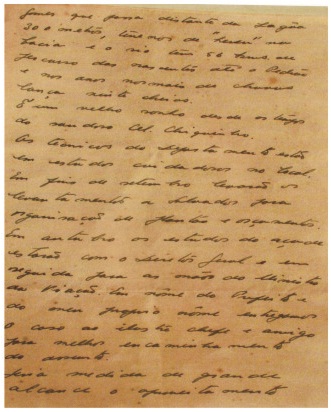 que passa distante da Lagôa
300 metros, temos de "descer" na
bacia e o rio tem 56 kms. de
percurso das nascentes até o
e nos anos normais de chuvas
lança
É um velho sonho desde os tempos
do saudoso Cel. Chiquinho.
Os tecnicos do departamento estão
em estudos cuidadosos no local.
Em fins de setembro levarão os
levantamentos a para
organisação de plantas e orçamento.
Em outubro os estudos de acordo
estarão com o Diretor Geral e em
seguida para as mãos do Ministro
da Viação. Em nome do Prefeito e
do meu proprio nome entregamos
o caso ao ilustre chefe e amigo
para melhor encaminhamento
do assunto.
Seria medida de grande
alcance o apoveitamento